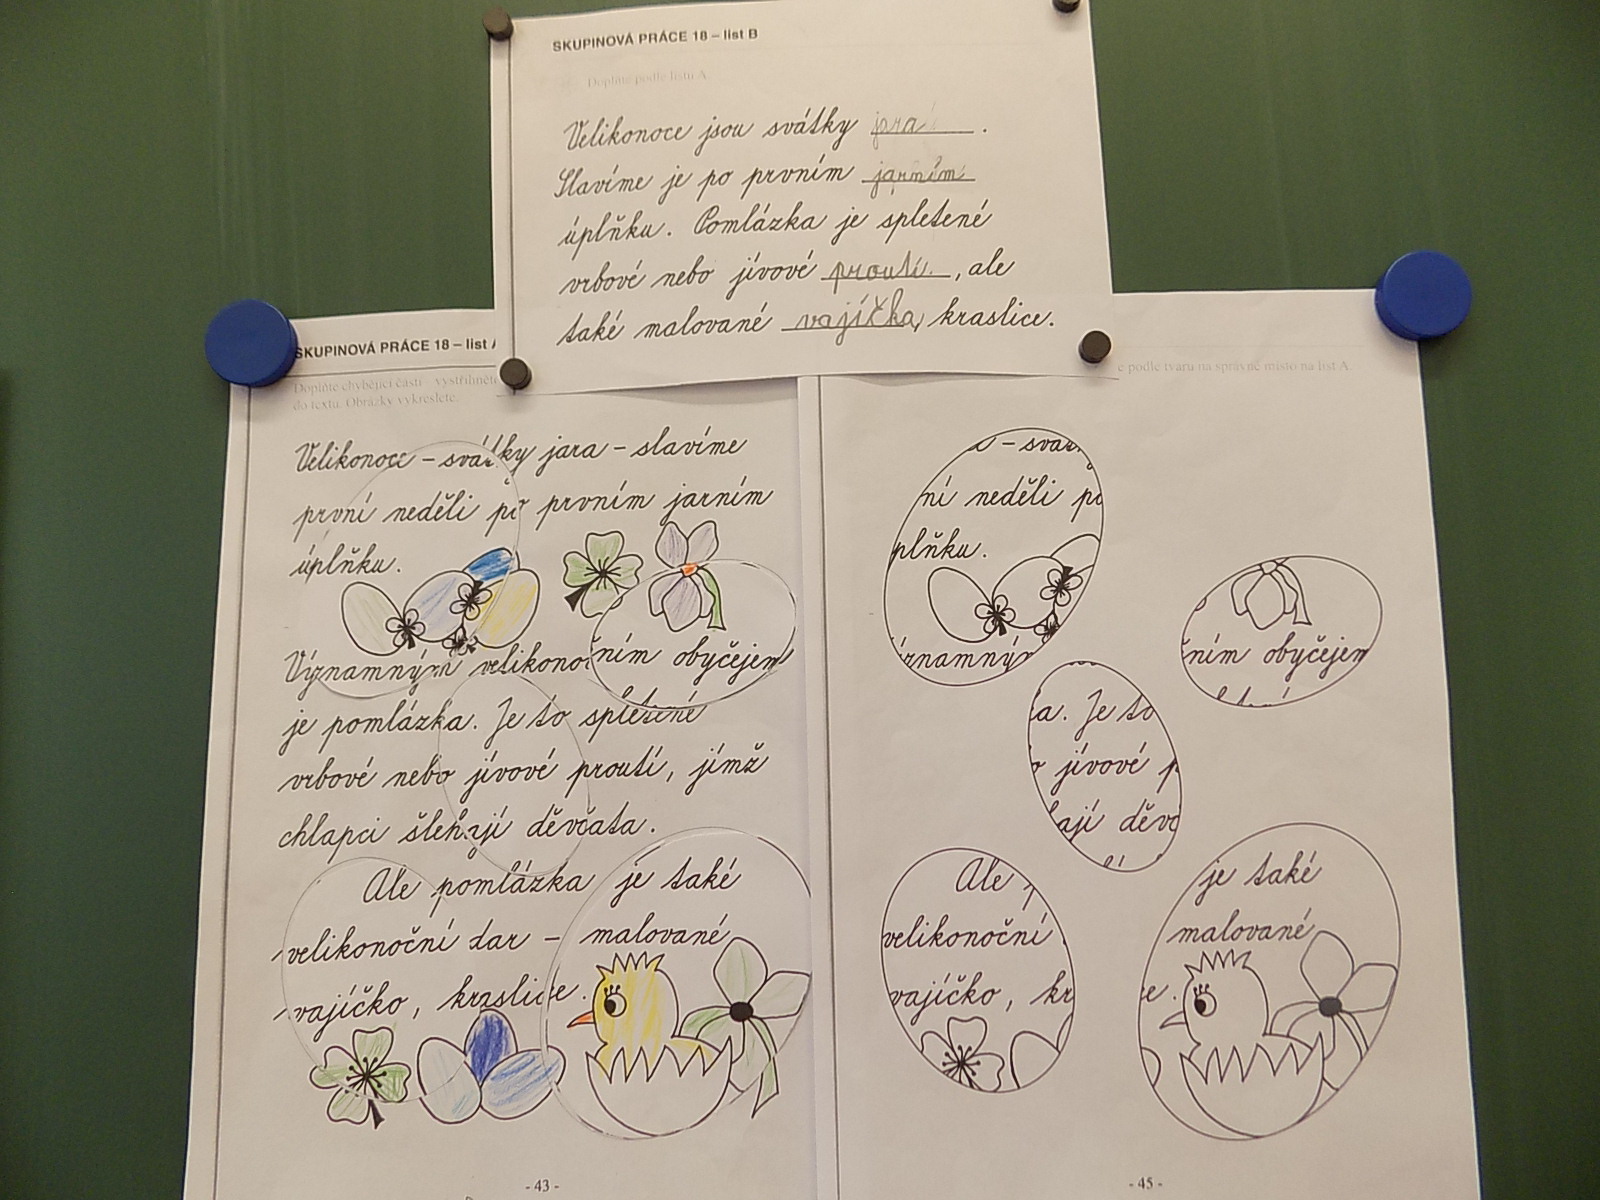 SKUPINOVÁ PRÁCE 18 – list B
Doplňte podle listu A.
Velikonoce jsou svátky jara.
Slavíme je po prvním jarním
úplňku. Pomlázka je spletené
vrbové nebo jívové proutí, ale
také malované vajíčko, kraslice.
SKUPINOVÁ PRÁCE 18 – list A
Doplňte chybějící části – vystřihněte
do textu. Obrázky vykreslete.
Velikonoce – svátky jara – slavíme
první neděli po prvním jarním
úplňku.
Významným velikonočním obyčejem
je pomlázka. Je to spletené
vrbové nebo jívové proutí, jímž
chlapci šlehají děvčata.
Ale pomlázka je také
velikonoční dar – malované
vajíčko, kraslice.
- 43 -
e podle tvaru na správné místo na list A.
– svát
ní neděli po
plňku.
ýznamným
ním obyčejem
a. Je to
jívové p
ají děvč
Ale
velikonoční
vajíčko, kr
je také
malované
ce.
- 45 -